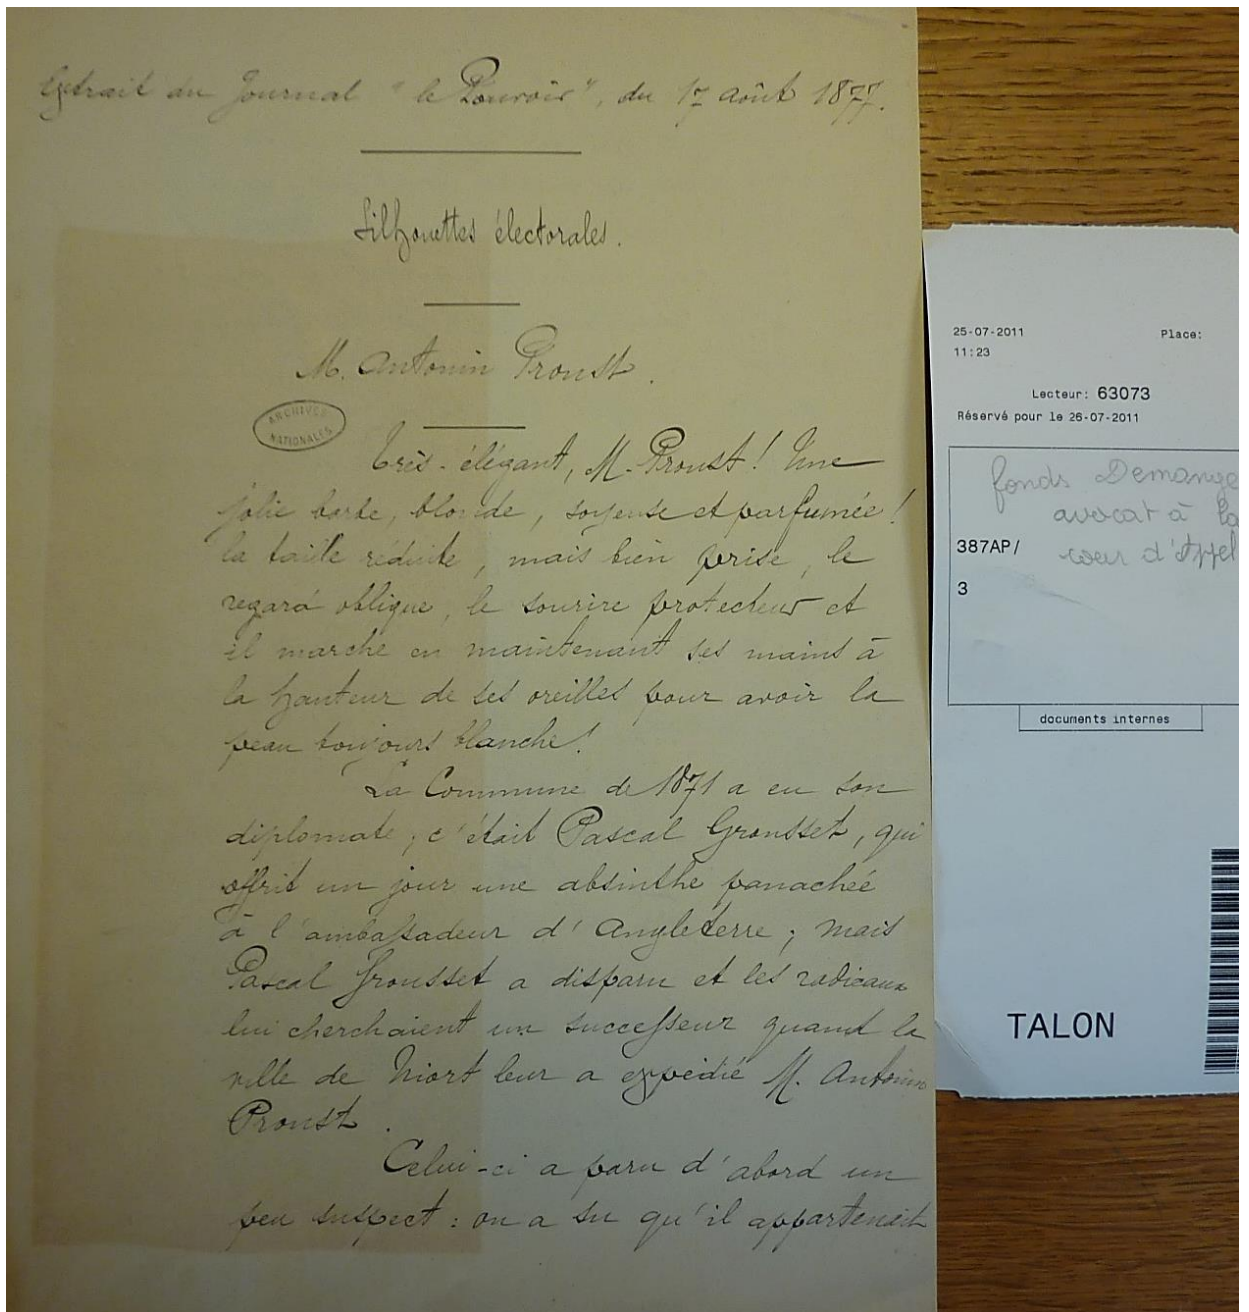 Extrait du Journal "le Pouvoir", du 17 août 1877.
Silhouettes électorales.
M. Antonin Proust.
ARCHIVES
NATIONALES
Très-élégant, M. Proust! Une
jolie barbe, blonde, soyeuse et parfumée!
la taille réduite, mais bien prise, le
regard oblique, le sourire protecteur et
il marche en maintenant ses mains à
la hauteur de ses oreilles pour avoir la
peau toujours blanche!
La Commune de 1871 a eu son
diplomate; c'était Pascal Grousset, qui
offrit un jour une absinthe panachée
à l'ambassadeur d'Angleterre; mais
Pascal Grousset a disparu et les radicaux
lui cherchaient un successeur quand la
ville de Niort leur a expédié M. Antonin
Proust.
Celui-ci a paru d'abord un
peu suspect: on a su qu'il appartenait
25-07-2011 Place:
11:23
Lecteur: 63073
Réservé pour le 26-07-2011
fonds Demange
avocat à la
387AP/ cour d'Appel
3
documents internes
TALON